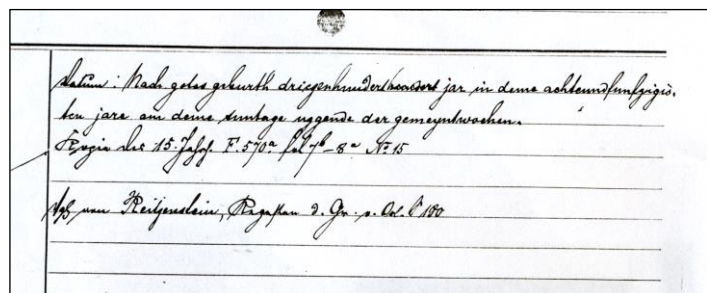 Datum: Nach gotes geburth driezenhundert jar in deme achteundfunfzigis-
ten jare am deme suntage uzgende der gemeyntwochen.
Kopie des 15. Jahrh. F. 570a fol 7b - 8a No 15
von Reitzenstein, Regesten d. Gr. v. Orl. S 180